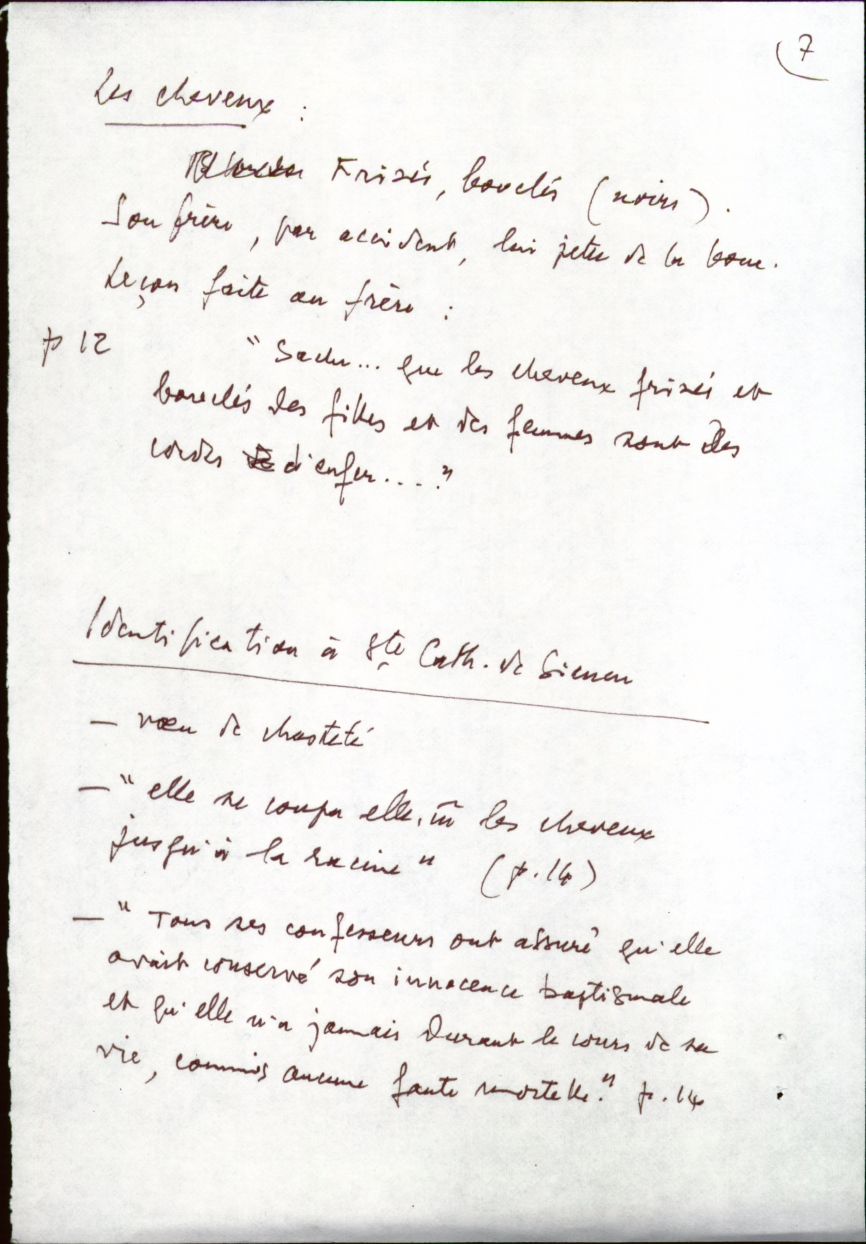 7
Les cheveux :
Frisés, bouclés (noirs).
Son frère, par accident, lui jette de la boue.
Leçon faite au frère :
p 12 "Sache... que les cheveux frisés et
bouclés des filles et des femmes sont des
cordes d'enfer...."
Identification à Ste Cath. de Sienne
— vœu de chasteté
— "elle se coupa elle-m̄ les cheveux
jusqu'à la racine" (p.14)
— "Tous ses confesseurs ont assuré qu'elle
avait conservé son innocence baptismale
et qu'elle n'a jamais durant le cours de sa
vie, commis aucune faute mortelle." p.14